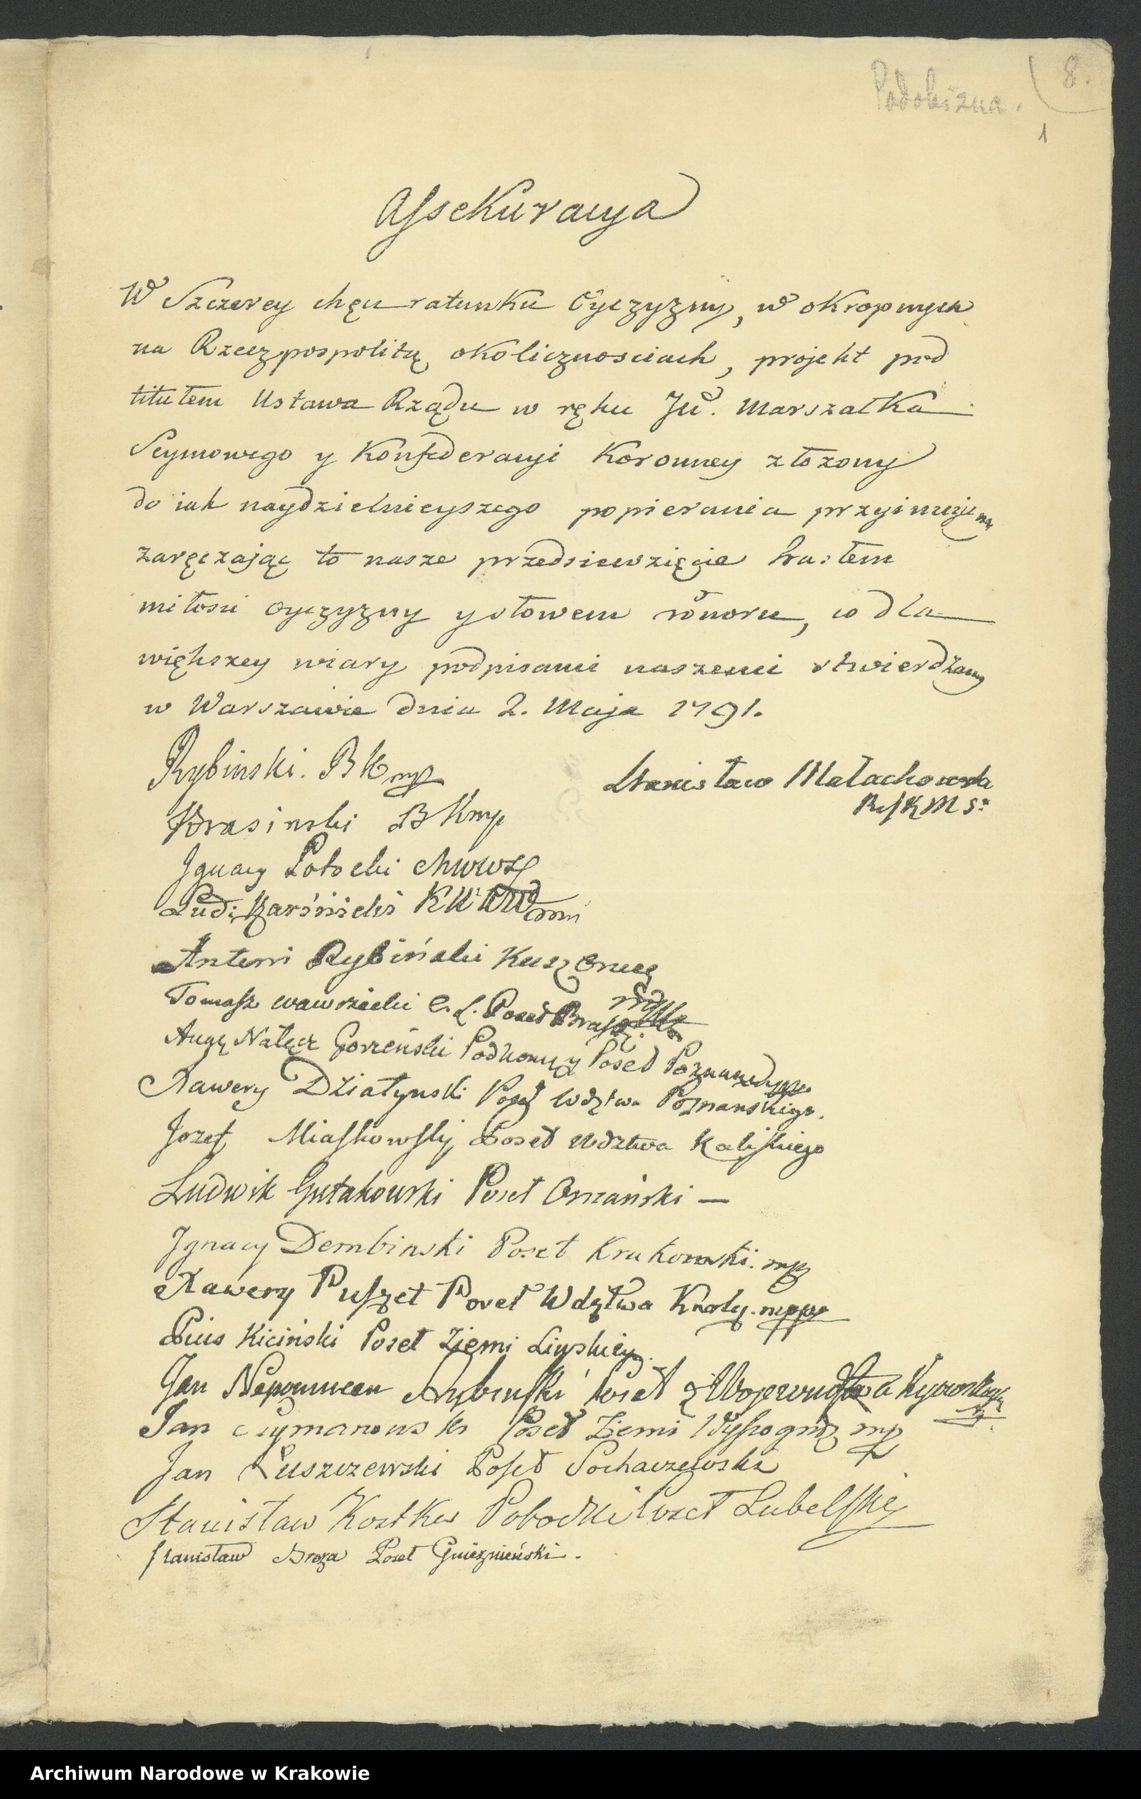 8.
Podobizna.
1
Assekuracya
W Szczerey chęci ratunku Oyczyzny, w okropnych
na Rzeczpospolitą okolicznosciach, projekt pod
titułem Ustawa Rządu w ręku JW. Marszałka
Seymowego y Konfederacyi Koronney złożony
do iak naydzielnieyszego popierania przyimujemy
zaręczając to nasze przedsiewzięcie hasłem
miłosci oyczyzny y słowem honoru, co dla
większey wiary podpisami naszemi stwierdzamy
w Warszawie dnia 2. Maja 1791.
Rybinski. BK mp
Stanisław Małachowski
Krasinski BK mp
Ignacy Potocki
Antoni Rybiński
Tomasz Wawrzecki
Augt Nałęcz Gorzeński Podkomy Poseł
Xawery Działynski Poseł Wdztwa Poznanskiego.
Jozef Miaskowsky Poseł Wdztwa Kaliskiego
Ludwik Gutakowski Poseł Orszański —
Ignacy Dembinski Poseł Krakowski. mp
Xawery Puszet Poseł Wdztwa
Pius Kiciński Poseł Ziemi Liwskiey.
Jan Nepomucen Rybinski Poseł z Wojewodstwa
Jan Szymanowski Poseł Ziemi Wyszogrodz mp
Jan Łuszczewski Poseł Sochaczewski
Stanisław Kostka Potocki Poseł Lubelski
Stanisław Breza Poseł Gnieznieński.
Archiwum Narodowe w Krakowie